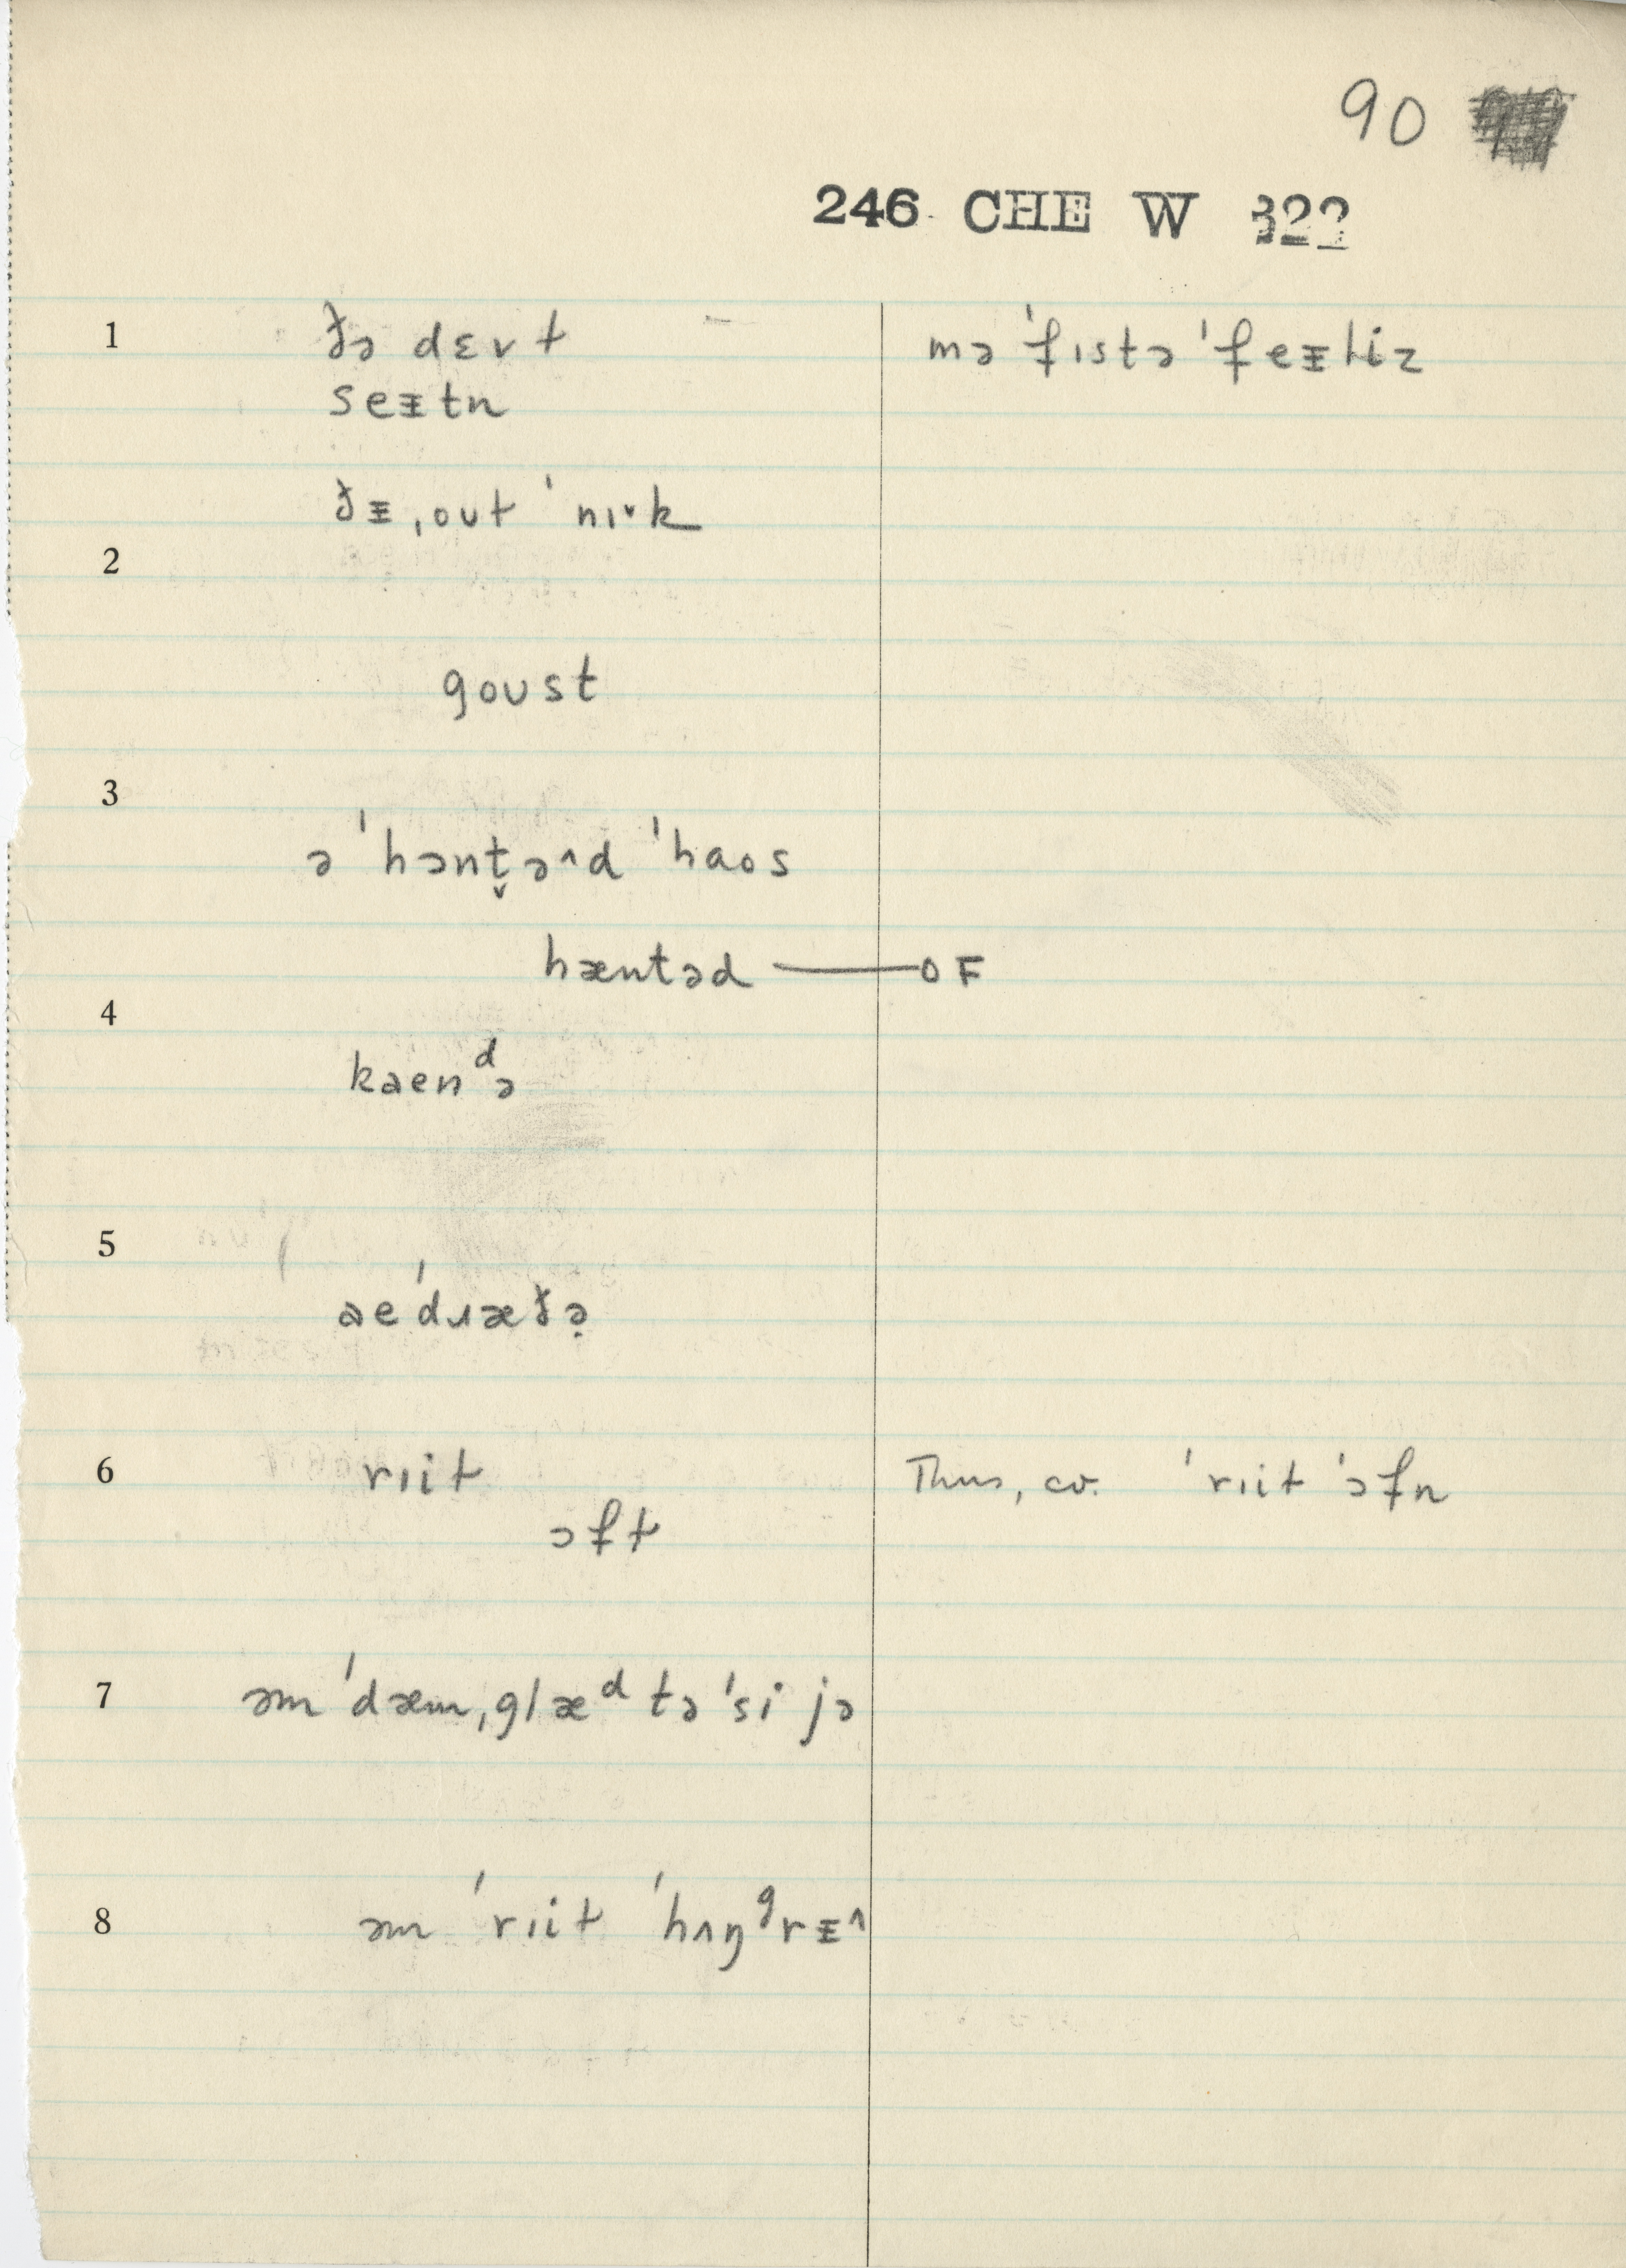 90
246 CHE W 322
1 ðə dɛvɫ mə ˈfɪstə ˈfeᵻɫiz
seᵻtn
ðᵻ ˌouɫ ˈnɪ˅k
2
goust
3
ə ˈhɔnt̬ə˄d ˈhaos
hæntəd —— OF
4
kaenᵈə
5
aeˈdɹæðə̣
6 rɪiɫ Thus, cv. ˈrɪiɫ ˈɔfn
ɔfɫ
7 əm ˈdæm ˌglæᵈ tə ˈsi jə
8 əm ˈrɪiɫ ˈhʌŋᶢrᵻ˄